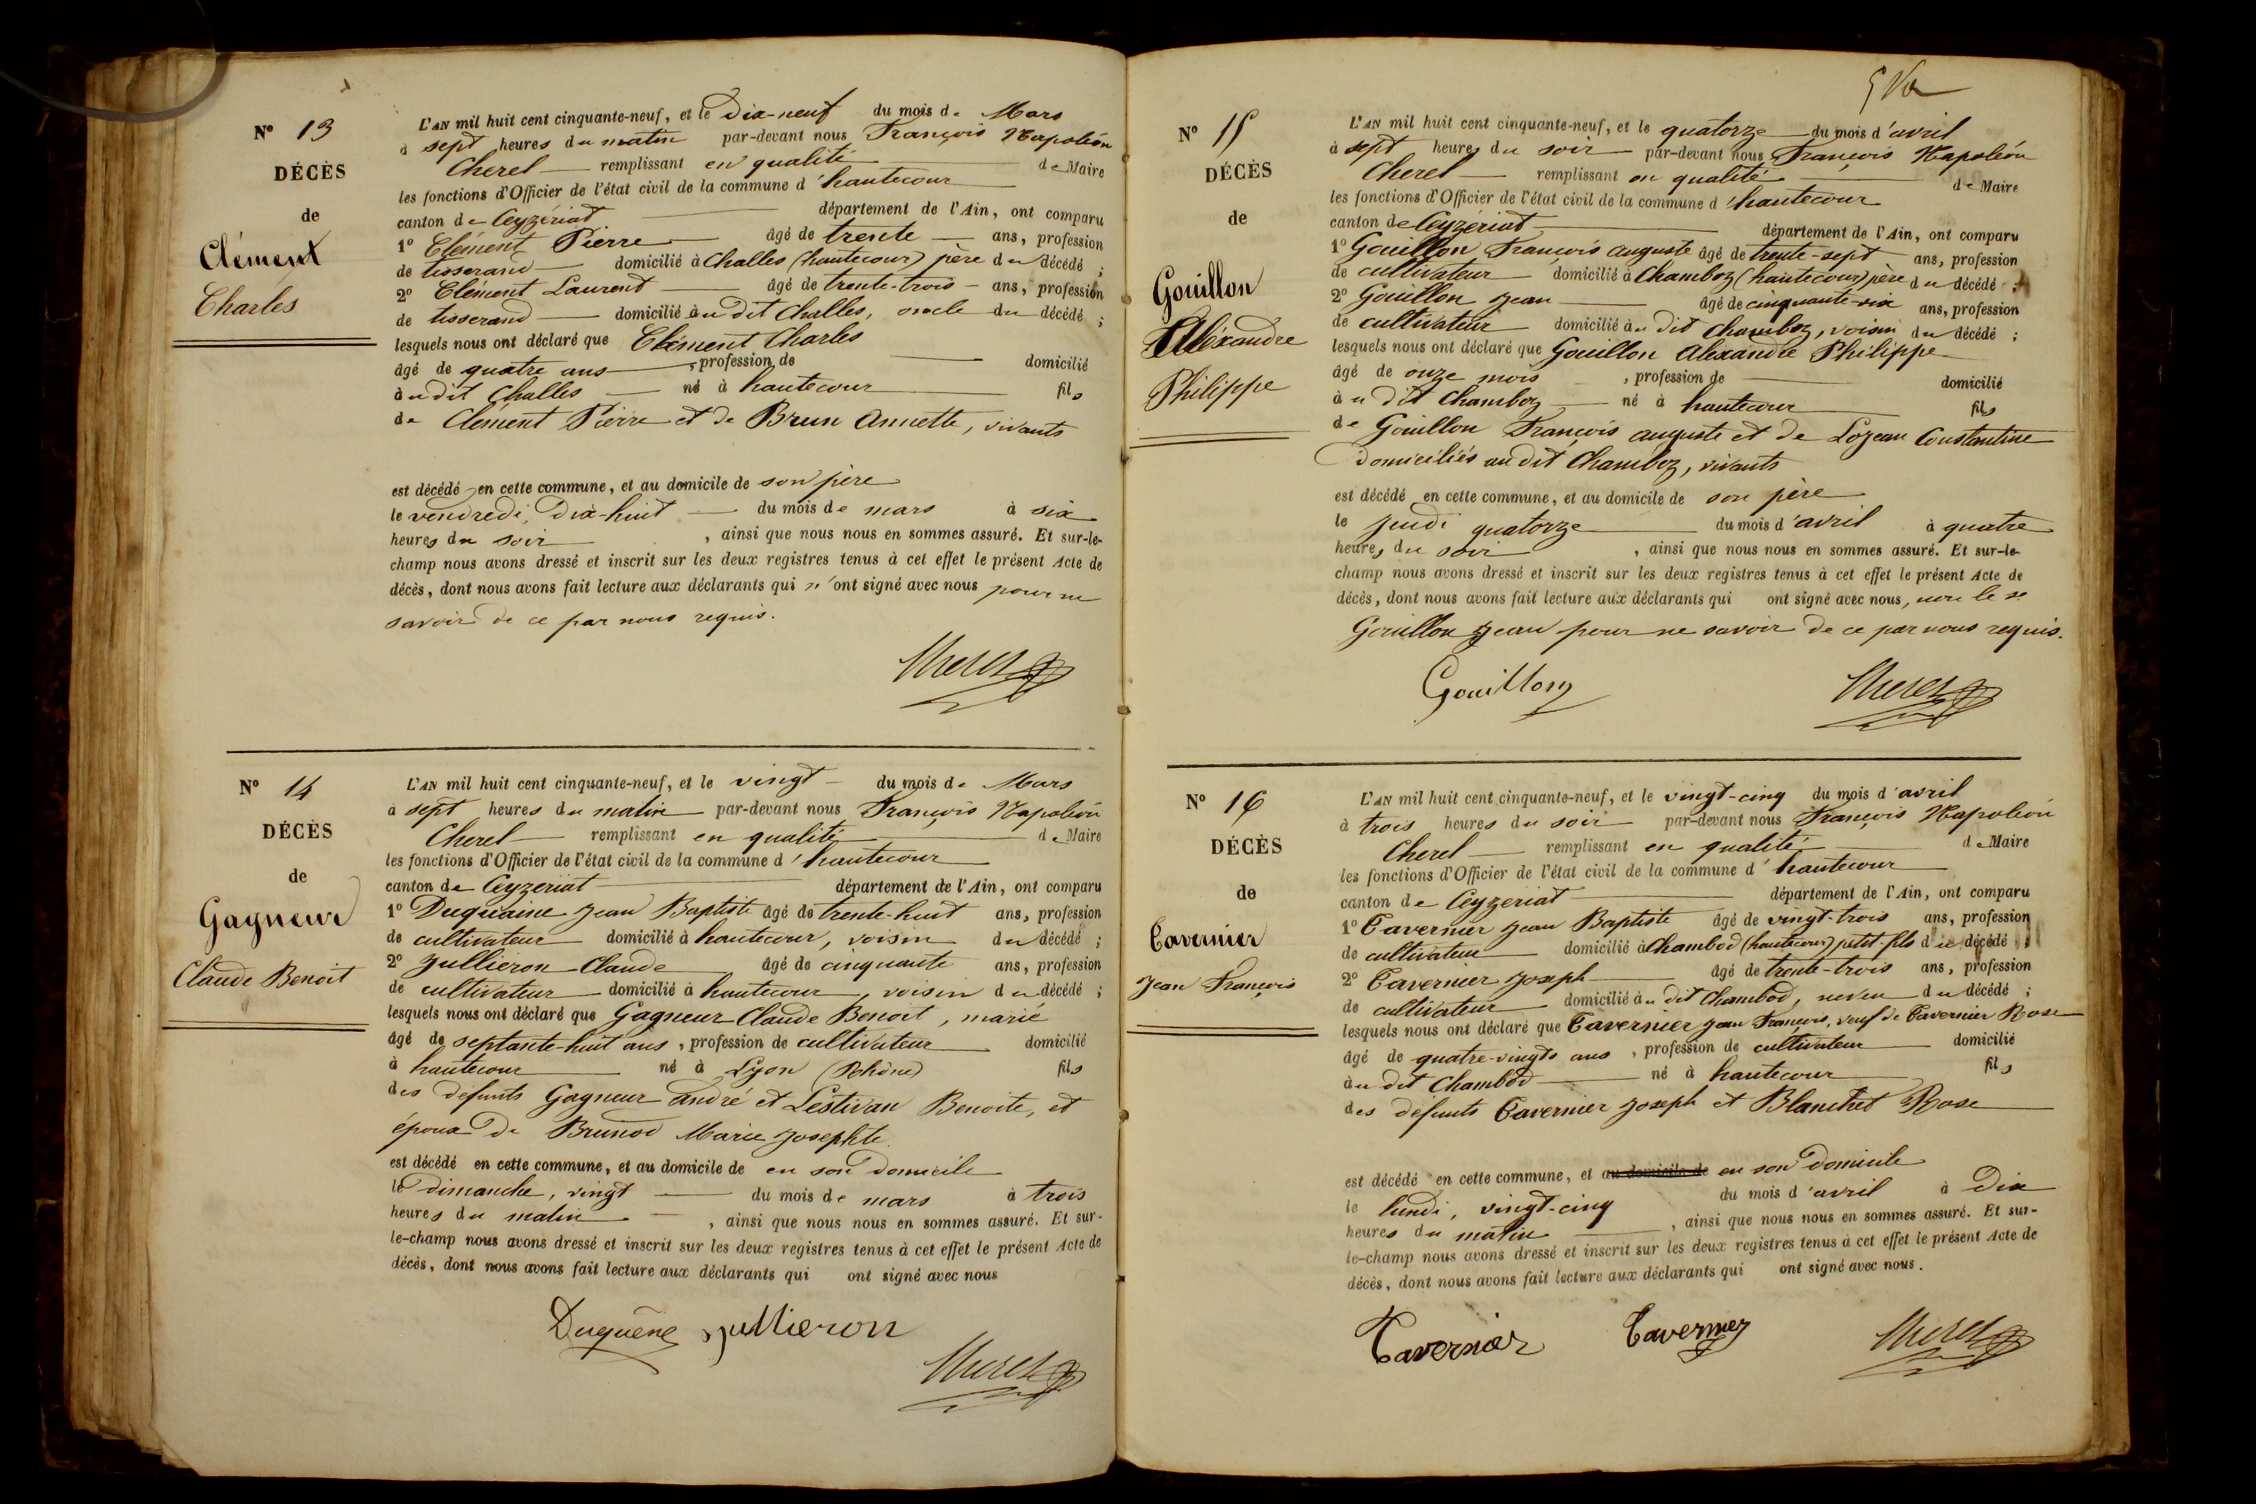 Nº 13
DÉCÈS
de
Clément
Charles
L'AN mil huit cent cinquante-neuf, et le Dix-neuf du mois de Mars
à sept heures du matin par-devant nous François Napoléon
Cherel remplissant en qualité de Maire
les fonctions d'Officier de l'état civil de la commune d'hautecour
canton de Ceyzériat département de l'Ain, ont comparu
1º Clément Pierre âgé de trente ans, profession
de tisserand domicilié à Challes (hautecour) père du décédé ;
2º Clément Laurent âgé de trente-trois ans, profession
de tisserand domicilié au dit Challes, oncle du décédé ;
lesquels nous ont déclaré que Clément Charles
âgé de quatre ans, profession de domicilié
au dit Challes né à hautecour fils
de Clément Pierre et de Brun Annette, vivants
est décédé en cette commune, et au domicile de son père
le vendredi, Dix-huit du mois de mars à six
heures du soir, ainsi que nous nous en sommes assuré. Et sur-le-
champ nous avons dressé et inscrit sur les deux registres tenus à cet effet le présent Acte de
décès, dont nous avons fait lecture aux déclarants qui n'ont signé avec nous pour ne
savoir de ce par nous requis.
Cherel
Nº 14
DÉCÈS
de
Gagneur
Claude Benoit
L'AN mil huit cent cinquante-neuf, et le vingt du mois de Mars
à sept heures du matin par-devant nous François Napoléon
Cherel remplissant en qualité de Maire
les fonctions d'Officier de l'état civil de la commune d'hautecour
canton de Ceyzeriat département de l'Ain, ont comparu
1º Duquaine Jean Baptiste âgé de trente-huit ans, profession
de cultivateur domicilié à hautecour, voisin du décédé ;
2º Jullieron Claude âgé de cinquante ans, profession
de cultivateur domicilié à hautecour, voisin du décédé ;
lesquels nous ont déclaré que Gagneur Claude Benoit, marié
âgé de septante-huit ans, profession de cultivateur domicilié
à hautecour né à Lyon (Rhône) fils
des défunts Gagneur André et Lestivan Benoite, et
époux de Brunod Marie Josephte
est décédé en cette commune, et au domicile de en son domicile
le dimanche, vingt du mois de mars à trois
heures du matin, ainsi que nous nous en sommes assuré. Et sur-
le-champ nous avons dressé et inscrit sur les deux registres tenus à cet effet le présent Acte de
décès, dont nous avons fait lecture aux déclarants qui ont signé avec nous
Duquêne Jullieron
Cherel
Nº 15
DÉCÈS
de
Gouillon
Aléxandre
Philippe
L'AN mil huit cent cinquante-neuf, et le quatorze du mois d'avril
à sept heures du soir par-devant nous François Napoléon
Cherel remplissant en qualité de Maire
les fonctions d'Officier de l'état civil de la commune d'hautecour
canton de Ceyzériat département de l'Ain, ont comparu
1º Gouillon François auguste âgé de trente-sept ans, profession
de cultivateur domicilié à Chamboz (hautecour) père du décédé ;
2º Gouillon Jean âgé de cinquante-six ans, profession
de cultivateur domicilié au dit Chamboz, voisin du décédé ;
lesquels nous ont déclaré que Gouillon Alexandre Philippe
âgé de onze mois, profession de domicilié
au dit Chamboz né à hautecour fils
de Gouillon François auguste et de Lozeau Constantine
domiciliés au dit Chamboz, vivants
est décédé en cette commune, et au domicile de son père
le Jeudi quatorze du mois d'avril à quatre
heures du soir, ainsi que nous nous en sommes assuré. Et sur-le-
champ nous avons dressé et inscrit sur les deux registres tenus à cet effet le présent Acte de
décès, dont nous avons fait lecture aux déclarants qui ont signé avec nous, non le sr
Gouillon Jean pour ne savoir de ce par nous requis.
Gouillon Cherel
Nº 16
DÉCÈS
de
Tavernier
Jean François
L'AN mil huit cent cinquante-neuf, et le vingt-cinq du mois d'avril
à trois heures du soir par-devant nous François Napoléon
Cherel remplissant en qualité de Maire
les fonctions d'Officier de l'état civil de la commune d'hautecour
canton de Ceyzeriat département de l'Ain, ont comparu
1º Tavernier Jean Baptiste âgé de vingt-trois ans, profession
de cultivateur domicilié à Chambod (hautecour) petit-fils du décédé ;
2º Tavernier Joseph âgé de trente-trois ans, profession
de cultivateur domicilié au dit Chambod, neveu du décédé ;
lesquels nous ont déclaré que Tavernier Jean François, veuf de Tavernier Rose
âgé de quatre-vingts ans, profession de cultivateur domicilié
au dit Chambod né à hautecour fils
des défunts Tavernier Joseph et Blanchet Rose
est décédé en cette commune, et au domicile de en son domicile
le lundi, vingt-cinq du mois d'avril à Dix
heures du matin, ainsi que nous nous en sommes assuré. Et sur-
le-champ nous avons dressé et inscrit sur les deux registres tenus à cet effet le présent Acte de
décès, dont nous avons fait lecture aux déclarants qui ont signé avec nous.
Tavernier Tavernier Cherel